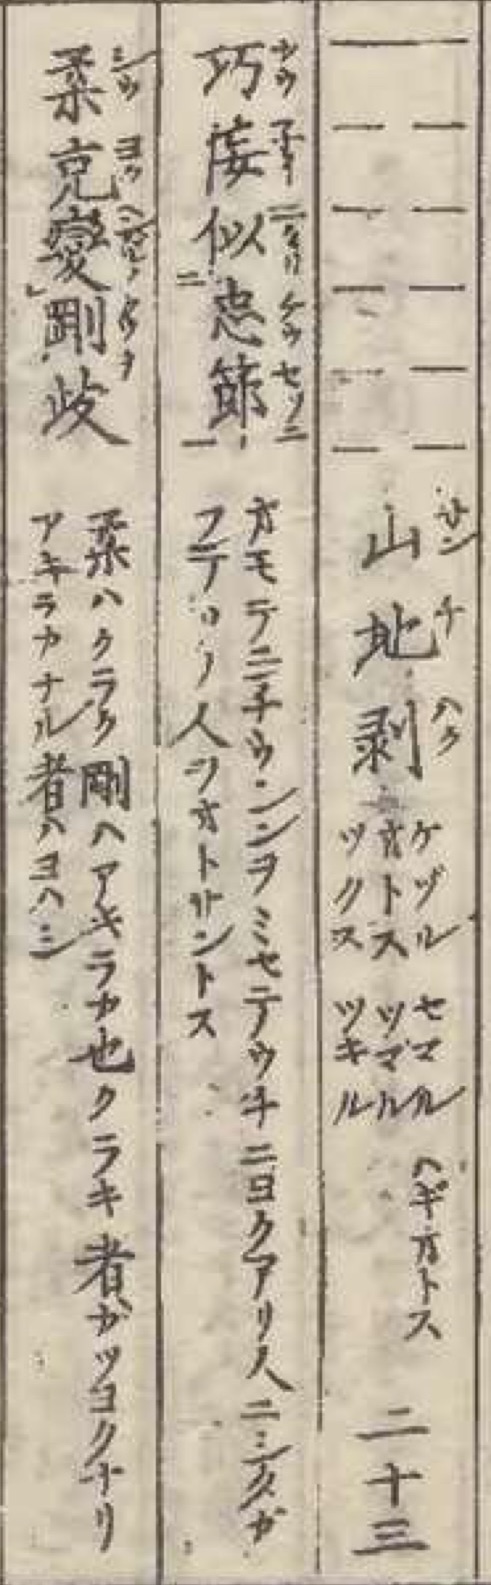 山地剥 ケヅル オトス ツクス セマル ツマル ツキル ヘギオトス 二十三
サン チ ハク
巧佞似忠節
オモテニチウシンヲミセテウチニヨクアリ人ニシタガ
フテ 人ヲオトサントス
柔克變剛歧
柔ハクラク剛ハアキラカ也クラキ者ガツヨクナリ
アキラカナル者ハヨハシ